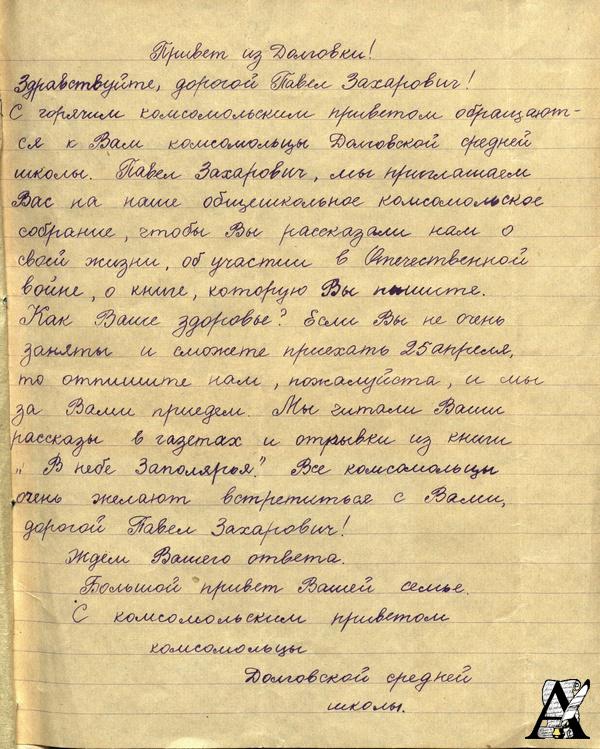 Привет из Долговки!
Здравствуйте, дорогой Павел Захарович!
С горячим комсомольским приветом обращают-
ся к Вам комсомольцы Долговской средней
школы. Павел Захарович, мы приглашаем
Вас на наше общешкольное комсомольское
собрание, чтобы Вы рассказали нам о
своей жизни, об участии в Отечественной
войне, о книге, которую Вы пишите.
Как Ваше здоровье? Если Вы не очень
заняты и сможете приехать 25 апреля,
то отпишите нам, пожалуйста, и мы
за Вами приедем. Мы читали Ваши
рассказы в газетах и отрывки из книги
„В небе Заполярья." Все комсомольцы
очень желают встретиться с Вами,
дорогой Павел Захарович!
Ждём Вашего ответа.
Большой привет Вашей семье.
С комсомольским приветом
комсомольцы
Долговской средней
школы.
А